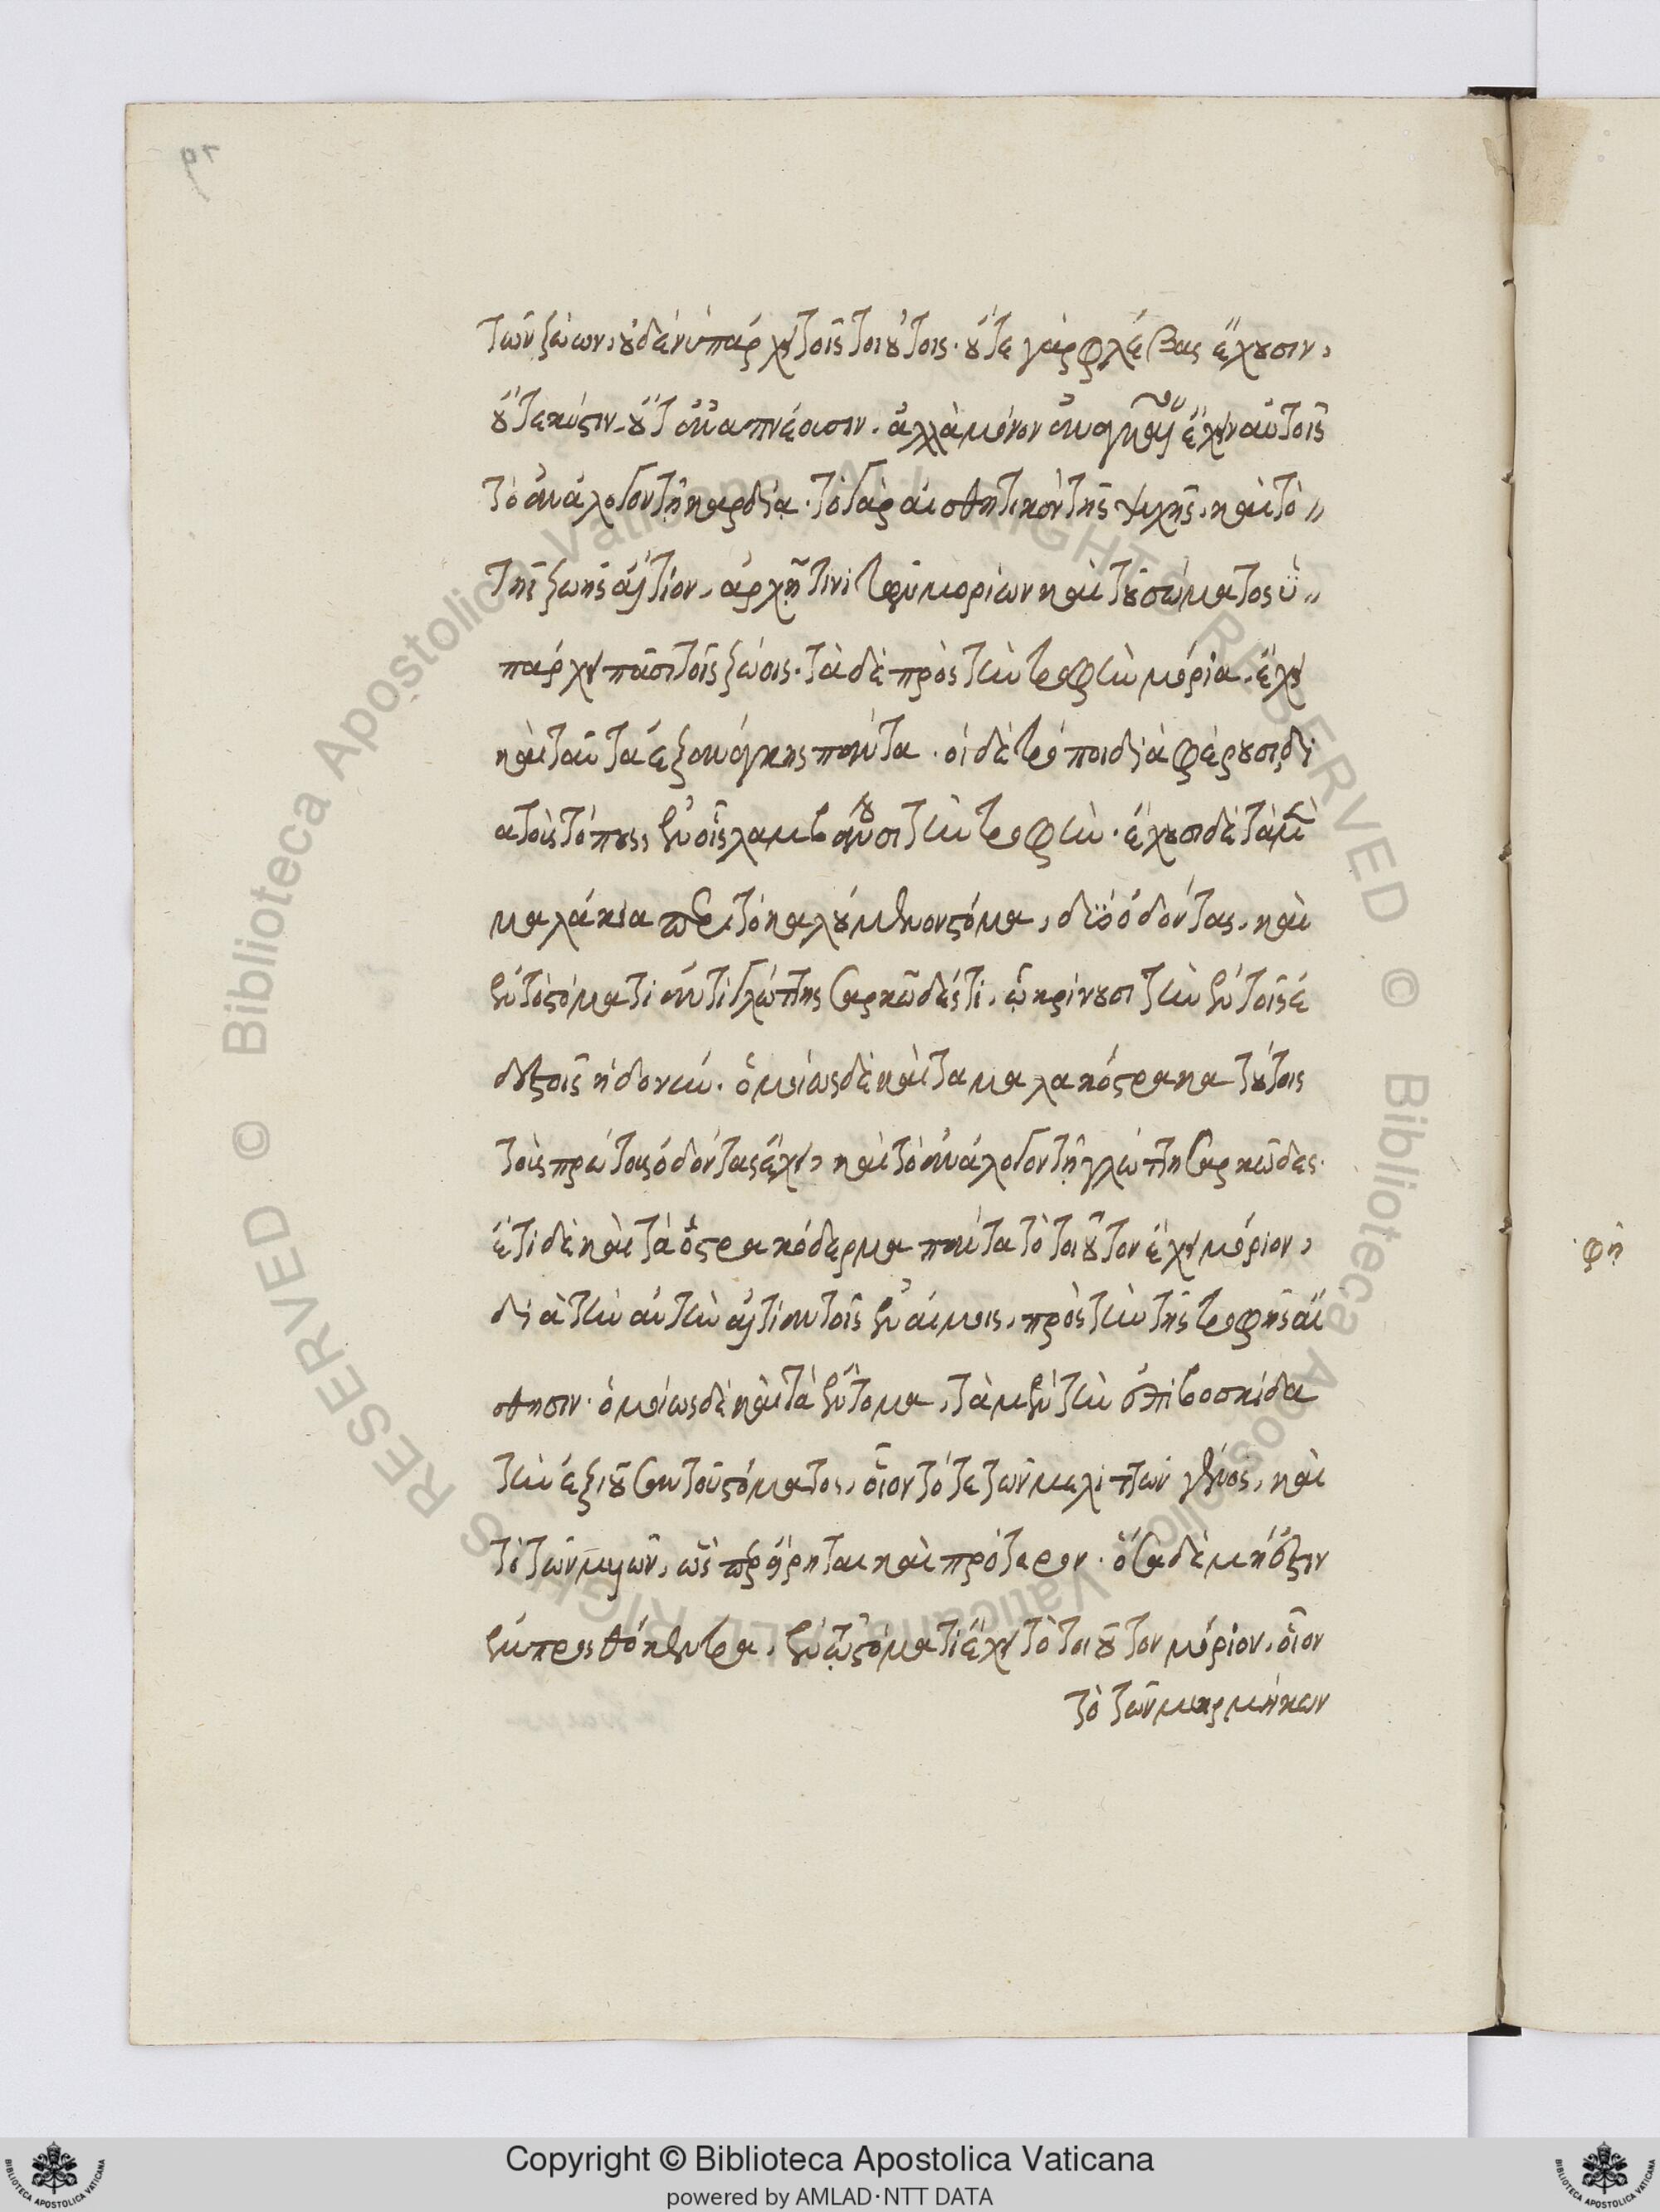 τῶν ζώων, οὐδὲν ὑπάρχει τοῖς τοιούτοις· οὔτε γὰρ φλέβας ἔχουσιν,
οὔτε κύστιν, οὔτ' ἀναπνέουσιν· ἀλλὰ μόνον ἀναγκαῖον ἔχειν αὐτοῖς
τὸ ἀνάλογον τῇ καρδίᾳ· τὸ γὰρ αἰσθητικὸν τῆς ψυχῆς, καὶ τὸ
τῆς ζωῆς αἴτιον, ἀρχῇ τινὶ τῶν μορίων καὶ τοῦ σώματος ὑ
πάρχει πᾶσι τοῖς ζώοις· τὰ δὲ πρὸς τὴν τροφὴν μόρια, ἔχει
καὶ ταῦτα ἐξ ἀνάγκης πάντα· οἱ δὲ τρόποι διαφέρουσι δι
ὰ τοὺς τόπους, ἐν οἷς λαμβάνουσι τὴν τροφήν· ἔχουσι δὲ τὰ μὲν
μαλάκια περὶ τὸ καλούμενον στόμα, δύο ὀδόντας, καὶ
ἐν τῷ στόματι ἀντὶ γλώττης σαρκῶδές τι, ᾧ κρίνουσι τὴν ἐν τοῖς ἐ
δεστοῖς ἡδονήν· ὁμοίως δὲ καὶ τὰ μαλακόστρακα τούτοις
τοὺς πρώτους ὀδόντας ἔχει, καὶ τὸ ἀνάλογον τῇ γλώττῃ σαρκῶδες·
ἔτι δὲ καὶ τὰ ὀστρακόδερμα πάντα τὸ τοιοῦτον ἔχει μόριον,
διὰ τὴν αὐτὴν αἰτίαν τοῖς ἐναίμοις, πρὸς τὴν τῆς τροφῆς αἴ
σθησιν· ὁμοίως δὲ καὶ τὰ ἔντομα, τὰ μὲν τὴν ἐπιβοσκίδα
τὴν ἐξιοῦσαν τοῦ στόματος, οἷον τό τε τῶν μελιττῶν γένος, καὶ
τὸ τῶν μυιῶν, ὥσπερ εἴρηται καὶ πρότερον· ὅσα δὲ μή ἐστιν
ἐμπροσθόκεντρα, ἐν τῷ στόματι ἔχει τὸ τοιοῦτον μόριον, οἷον
τὸ τῶν μυρμήκων
φῆ
Copyright © Biblioteca Apostolica Vaticana
powered by AMLAD·NTT DATA